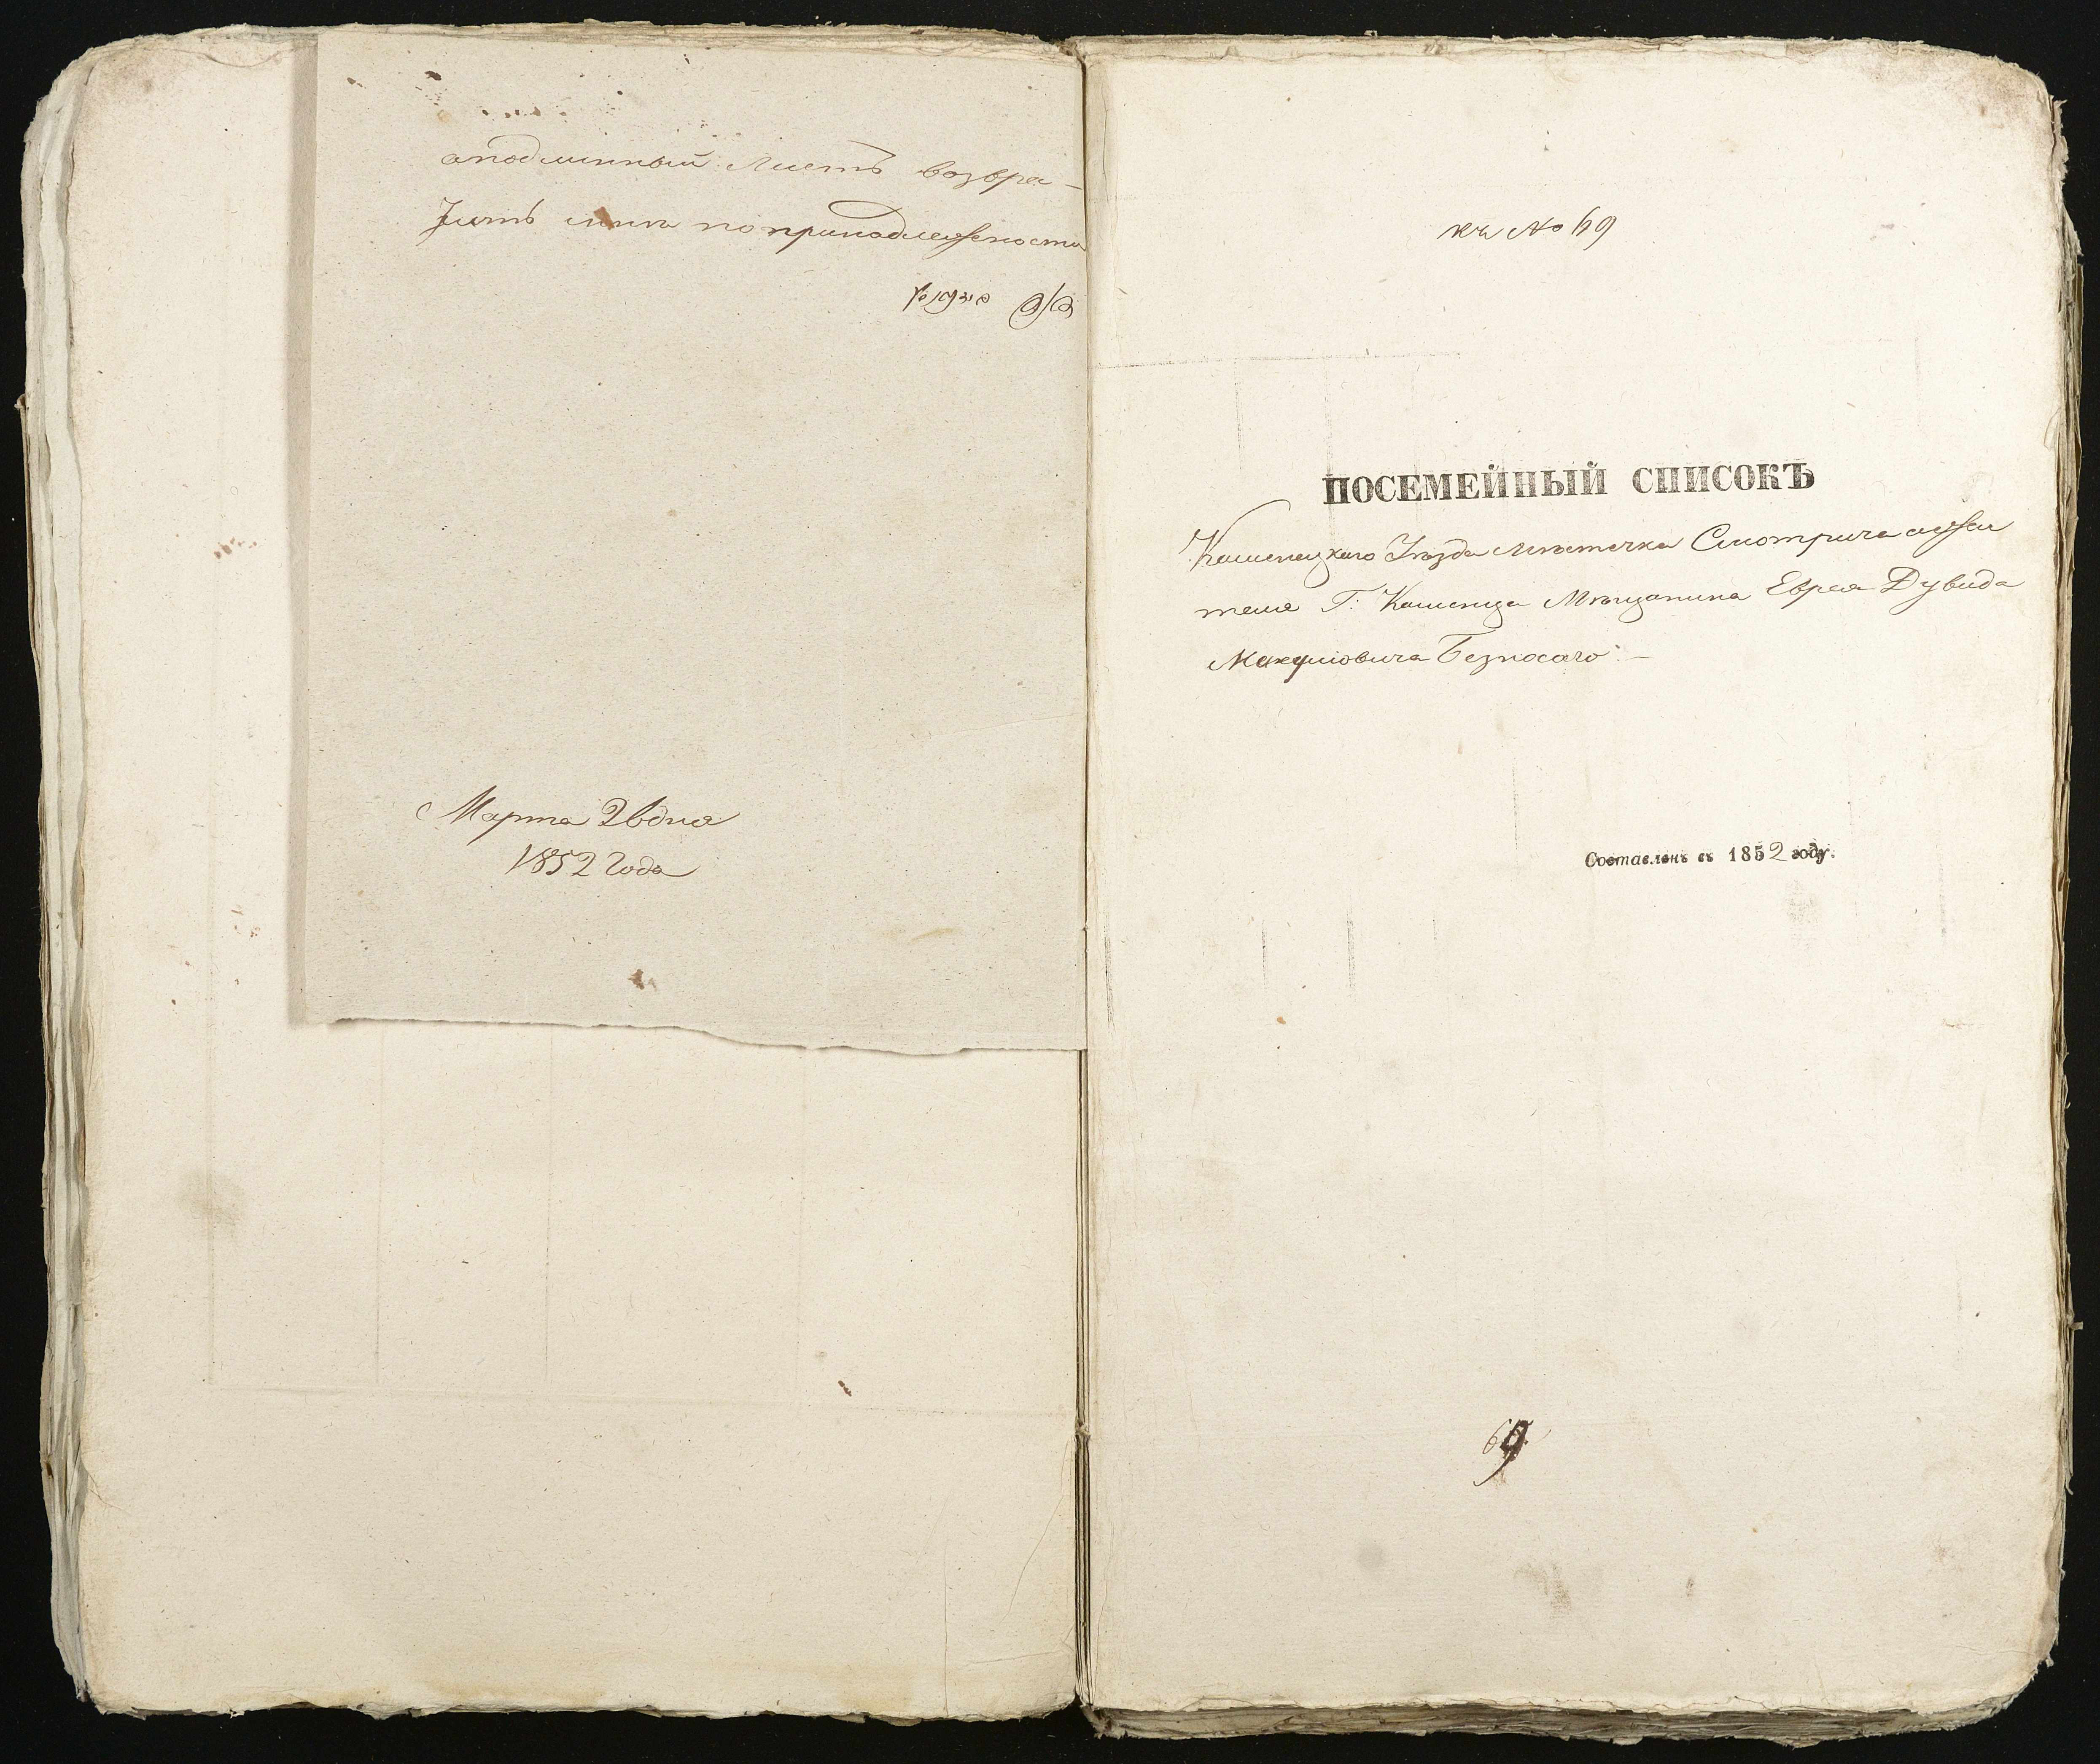 а подлинный листъ возвра-
тить мнѣ по принадлежности
Марта 26 дня
1852 года
къ № 69
ПОСЕМЕЙНЫЙ СПИСОКЪ
Каменецкаго Уѣзда мѣстечка Смотрича жи
теля Г: Каменца Мѣщанина Еврея Дувида
Безносаго
Составленъ въ 1852 году.
69